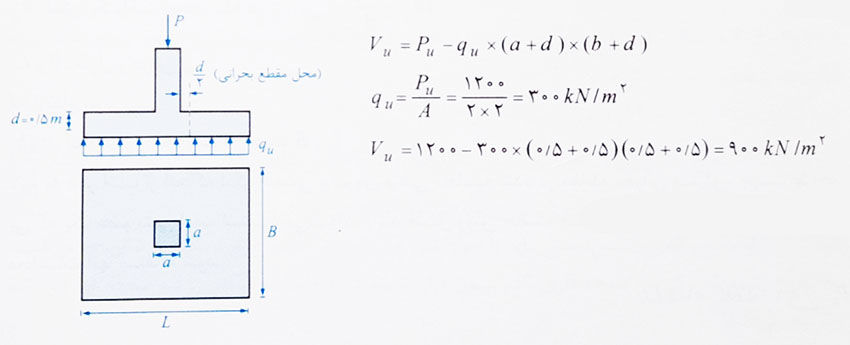 P
d/۲ (محل مقطع بحرانی)
d=۰/۵ m
q_u
a
a
B
L
V_u = P_u − q_u × (a+d) × (b+d)
q_u = P_u/A = ۱۲۰۰/(۲×۲) = ۳۰۰ kN/m^۲
V_u = ۱۲۰۰ − ۳۰۰×(۰/۵+۰/۵)(۰/۵+۰/۵) = ۹۰۰ kN/m^۲